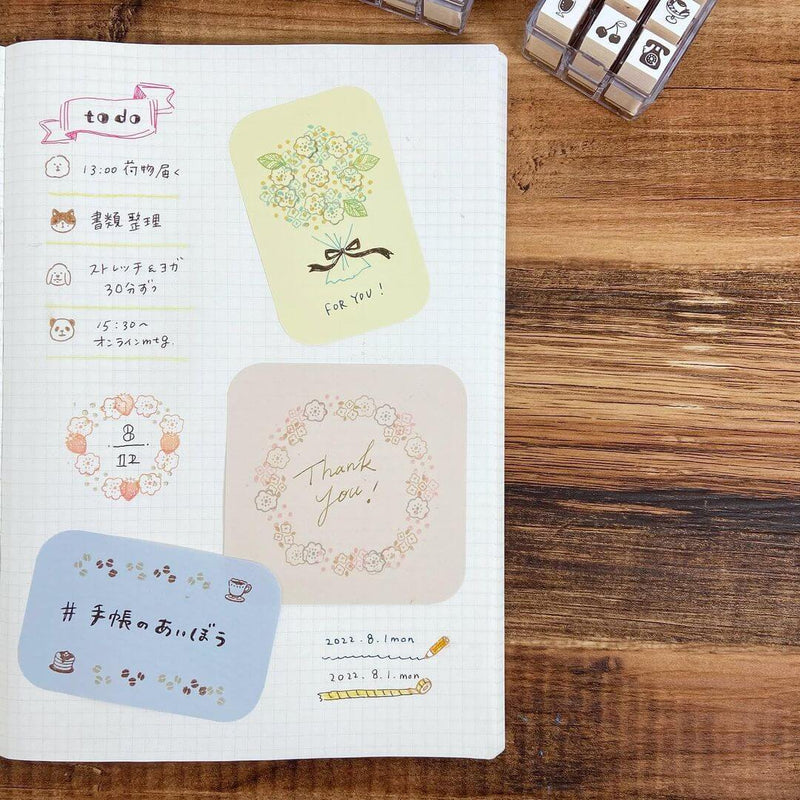 to do
13:00 荷物届く
書類整理
ストレッチ&ヨガ
30分ずつ
15:30~
オンラインmtg.
FOR YOU!
8
12
Thank
you!
# 手帳のあいぼう
2022.8.1mon
2022.8.1.mon